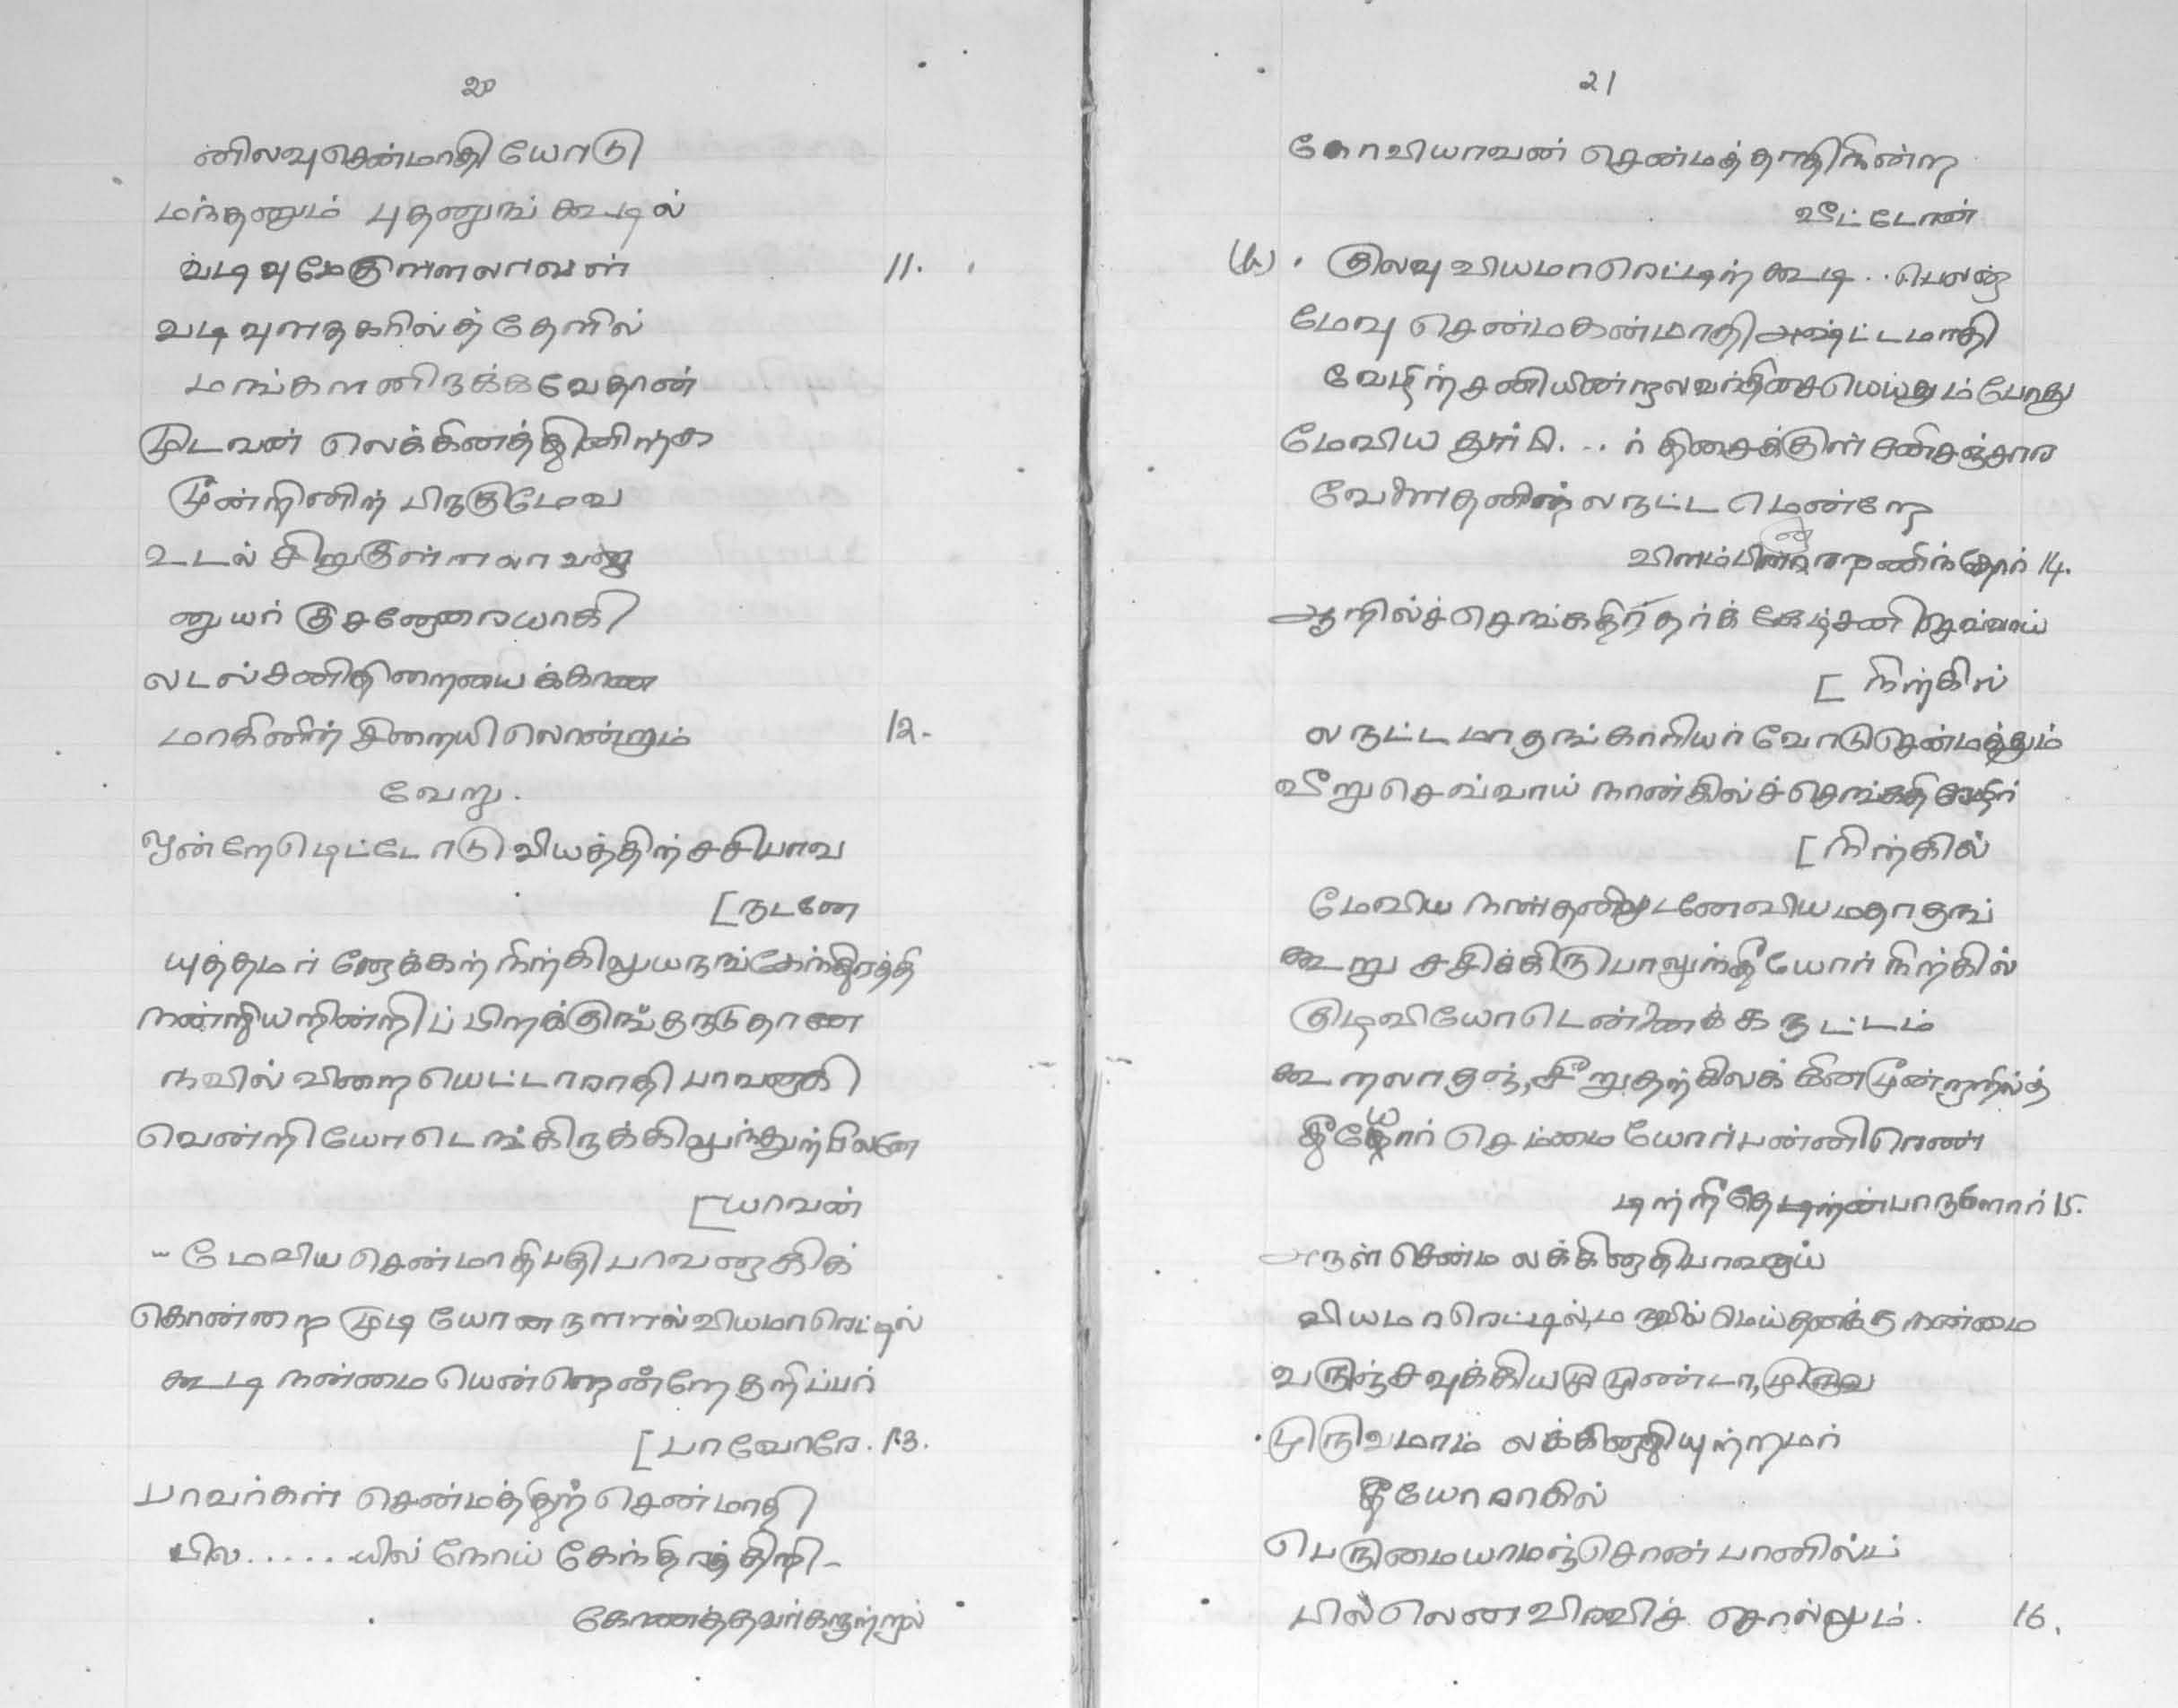 20
னிலவுசென்மாதி யோடு
மந்தனும் புதனுங் கூடில்
வடிவுமேகுள்ளலாவன் 11.
வடிவுளதகரில்த் தேளில்
மங்களனிருக்கவேதான்
முடவன் லெக்கினத்தினிற்க
மூன்றினிற் பிறகுமேவ
உடல் சிறுகுள்ளலாவது
னுயர் குசனோரையாகி
லடல்சனிதிறையைக்காண
மாகினிற் சிறையிலொன்றும் 12.
வேறு.
ஒன்றோடெட்டோடு வியத்திற்சசிபாவ
[ருடனே
யுத்தமர் னோக்கற்நிற்கிலுயருங்கேந்திரத்தி
நன்றியறின்றிப் பிறக்குங்தருடுதான
நவில் விறையெட்டாராதி பாவனாகி
வென்றியோடெங்கிருக்கிலுந்துற்பிலனே
[யாவன்
மேவிய சென்மாதிபதிபாவனாகிக்
கொன்றை முடியோனருளால்வியமாரெட்டில்
கூடி நன்மையென்னொன்றே தரிப்பர்
[பாவோரே. 13.
பாவர்கள் சென்மத்திற் சென்மாதி
பில.....யில் நோய் கேந்திரத்திரி-
கோணத்தவர்களுற்றல்
21
கோவியாவன் சென்மத்தாதிநின்ற
வீட்டோன்
குலவு வியமாரெட்டிற் கூடி..பெலன்
மேவு சென்மகன்மாதி அஷ்ட்டமாதி
வேழிற்சனியின்றலவர்திசையெய்தும்போது
மேவிய துர்பி...ர் திசைக்குள் சனிசஞ்சார
வேளைதனின்லருட்டமென்றே
விளம்பினராரணிந்தோர் 14.
ஆறில்ச் செங்கதிர்தர்க் கேழ்சனி செவ்வாய்
[நிற்கில்
லருட்டமாதங்காரியர் வோடுசென்மத்தும்
வீறு செவ்வாய் நான்கில்ச் செங்கதிரேழிற்
[நிற்கில்
மேவிய நாள்தனிலுடனேவியமதாதங்
கூறு சசிக்கிருபாலுந்தீயோர் நிற்கில்
குடிவியோடென்னைக்கருட்டம்
கூறலாதந்,சீறுதற்கிலக்கினமூன்றாறில்த்
தீயோர் செம்மையோர்பன்னிரெண்
டிற்றிதேடிற்றன்பாருளோர் 15.
அருள் சென்ம லக்கினாதிபாவறாய்
வியமாரெட்டில்,மருவில் மெய்தனக்கு நன்மை
வருஞ்சவுக்கியமுமுண்டா,முருவ
முருவமாம் லக்கினாதியுற்றமர்
தீயோராகில்
பெருமையாமந்சொன்பானில்ப்
பில்லெனவிரவிச் சொல்லும். 16.